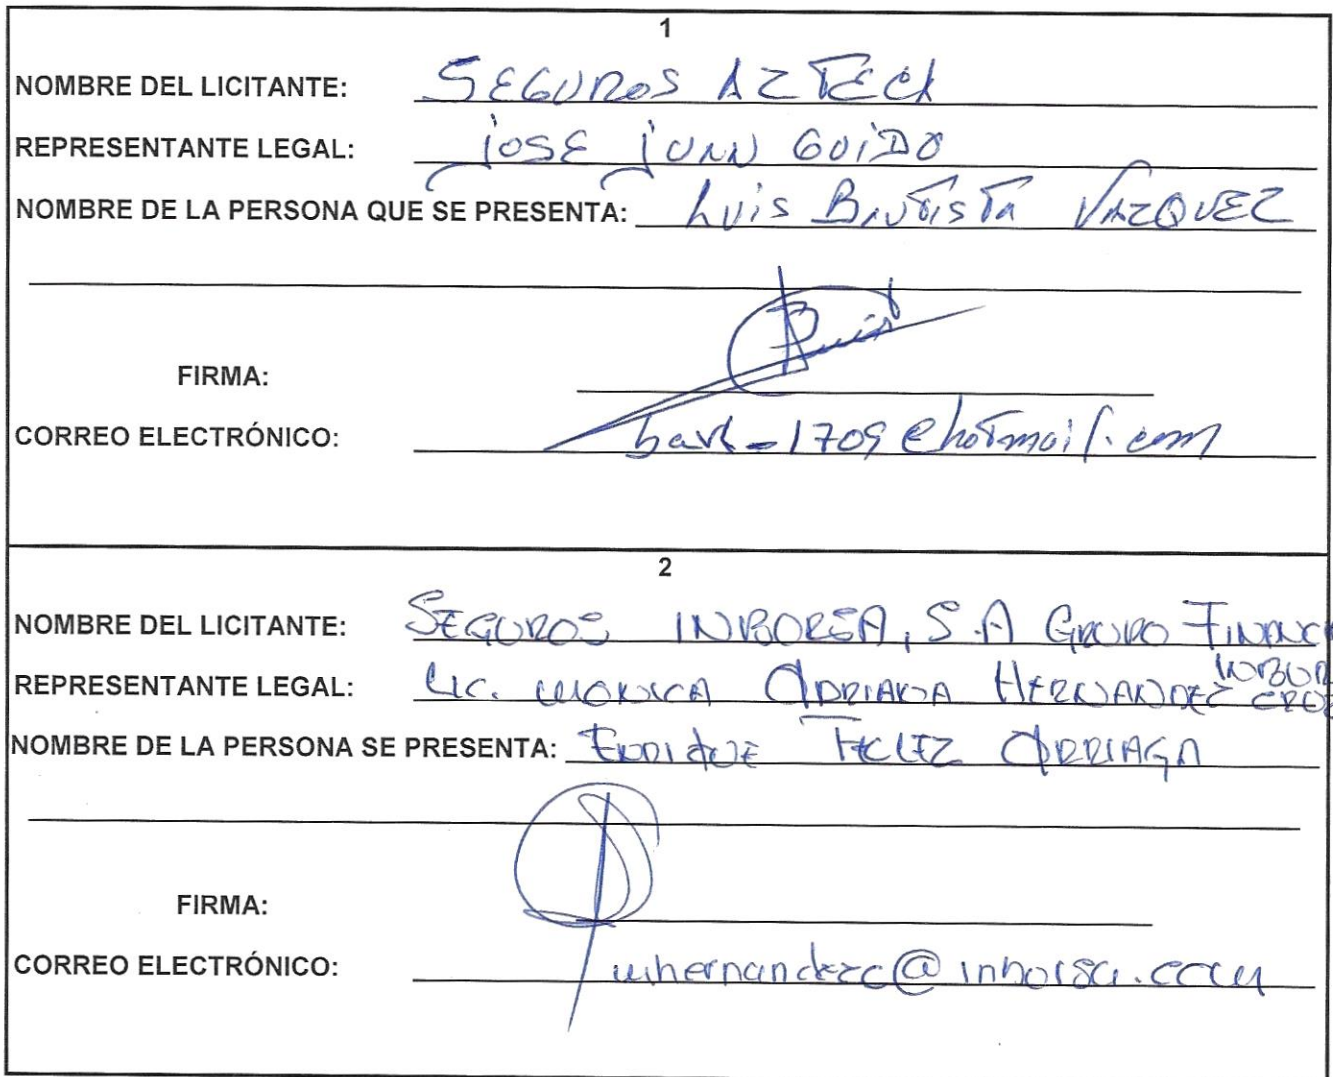 1
NOMBRE DEL LICITANTE: SEGUROS AZTECA
REPRESENTANTE LEGAL: JOSE JUAN GUIDO
NOMBRE DE LA PERSONA QUE SE PRESENTA: LUIS BAUTISTA VAZQUEZ
FIRMA:
CORREO ELECTRÓNICO: @hotmail.com
2
NOMBRE DEL LICITANTE: SEGUROS INBURSA, S.A GRUPO FINANC
INBUR
REPRESENTANTE LEGAL: LIC. MONICA ADRIANA HERNANDEZ
NOMBRE DE LA PERSONA SE PRESENTA: ENRIQUE FELIZ ARRIAGA
FIRMA:
CORREO ELECTRÓNICO: mhernandezc@inbursa.com